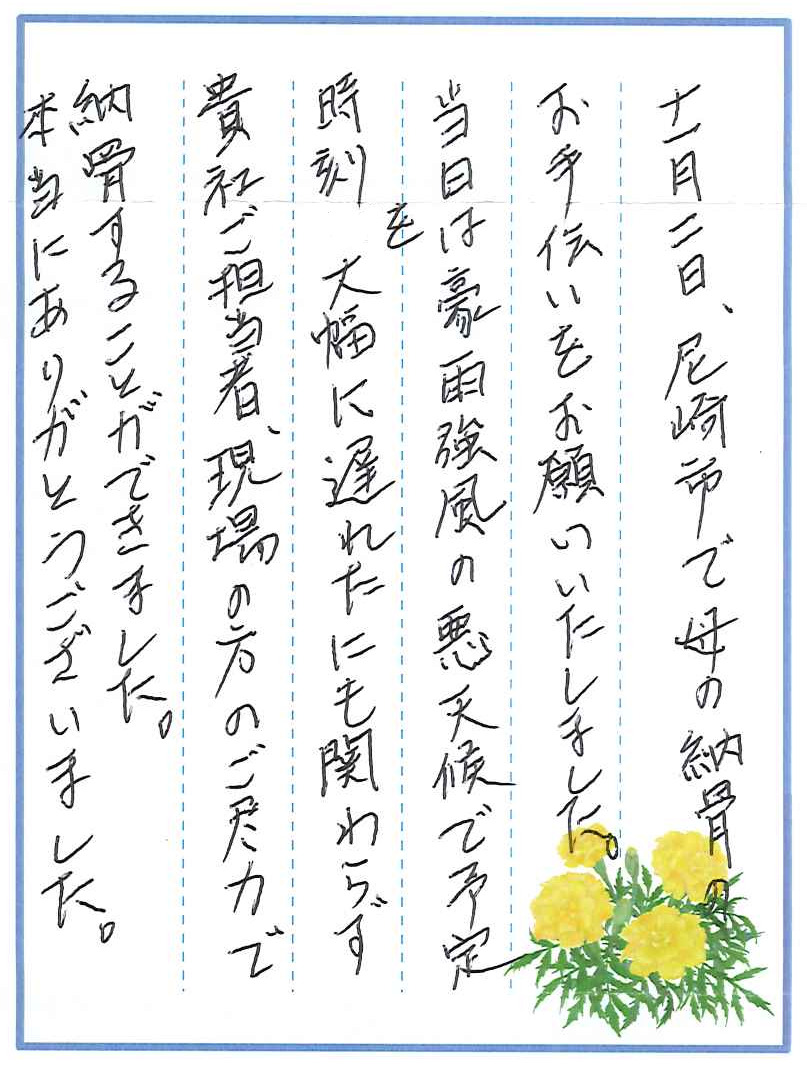 十一月二日、尼崎市で母の納骨の
お手伝いをお願いいたしました。
当日は豪雨強風の悪天候で予定
時刻を大幅に遅れたにも関わらず
貴社ご担当者、現場の方のご尽力で
納骨することができました。
本当にありがとうございました。